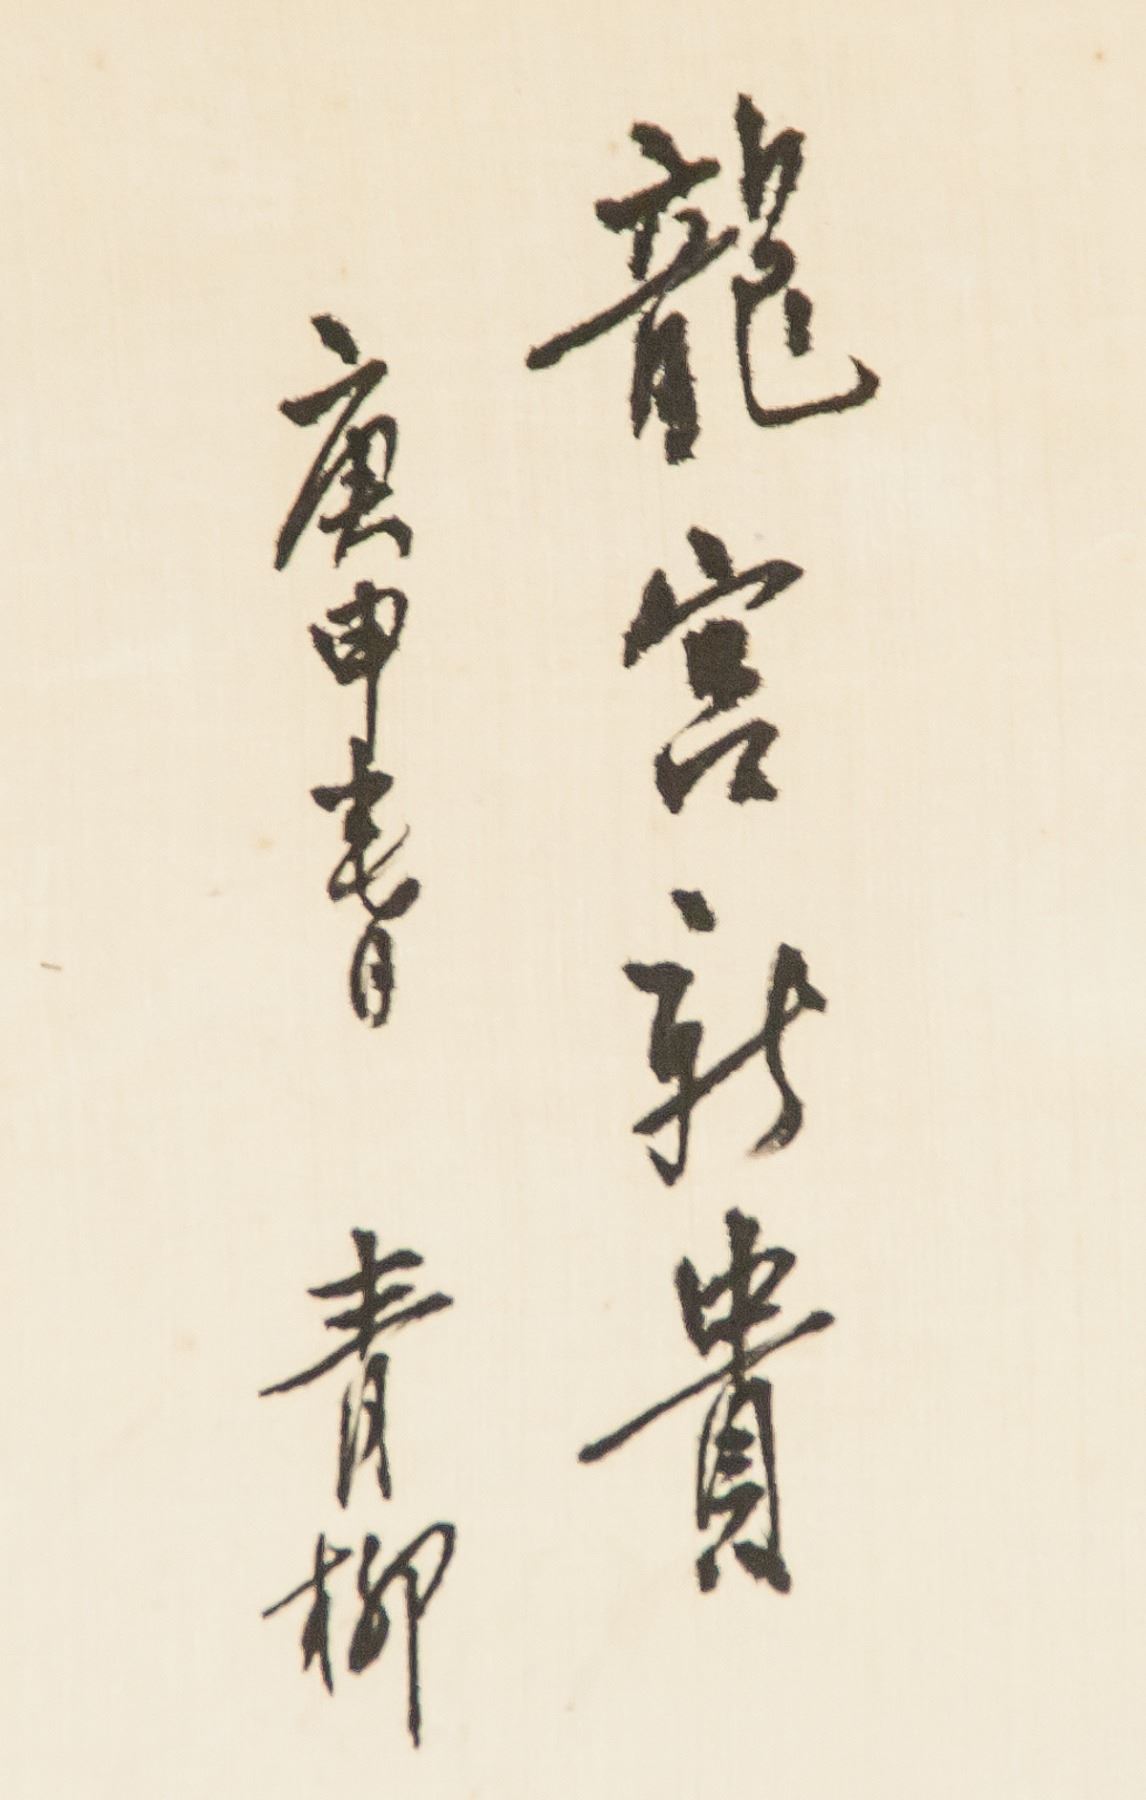 龍宮新貴
庚申月 青柳